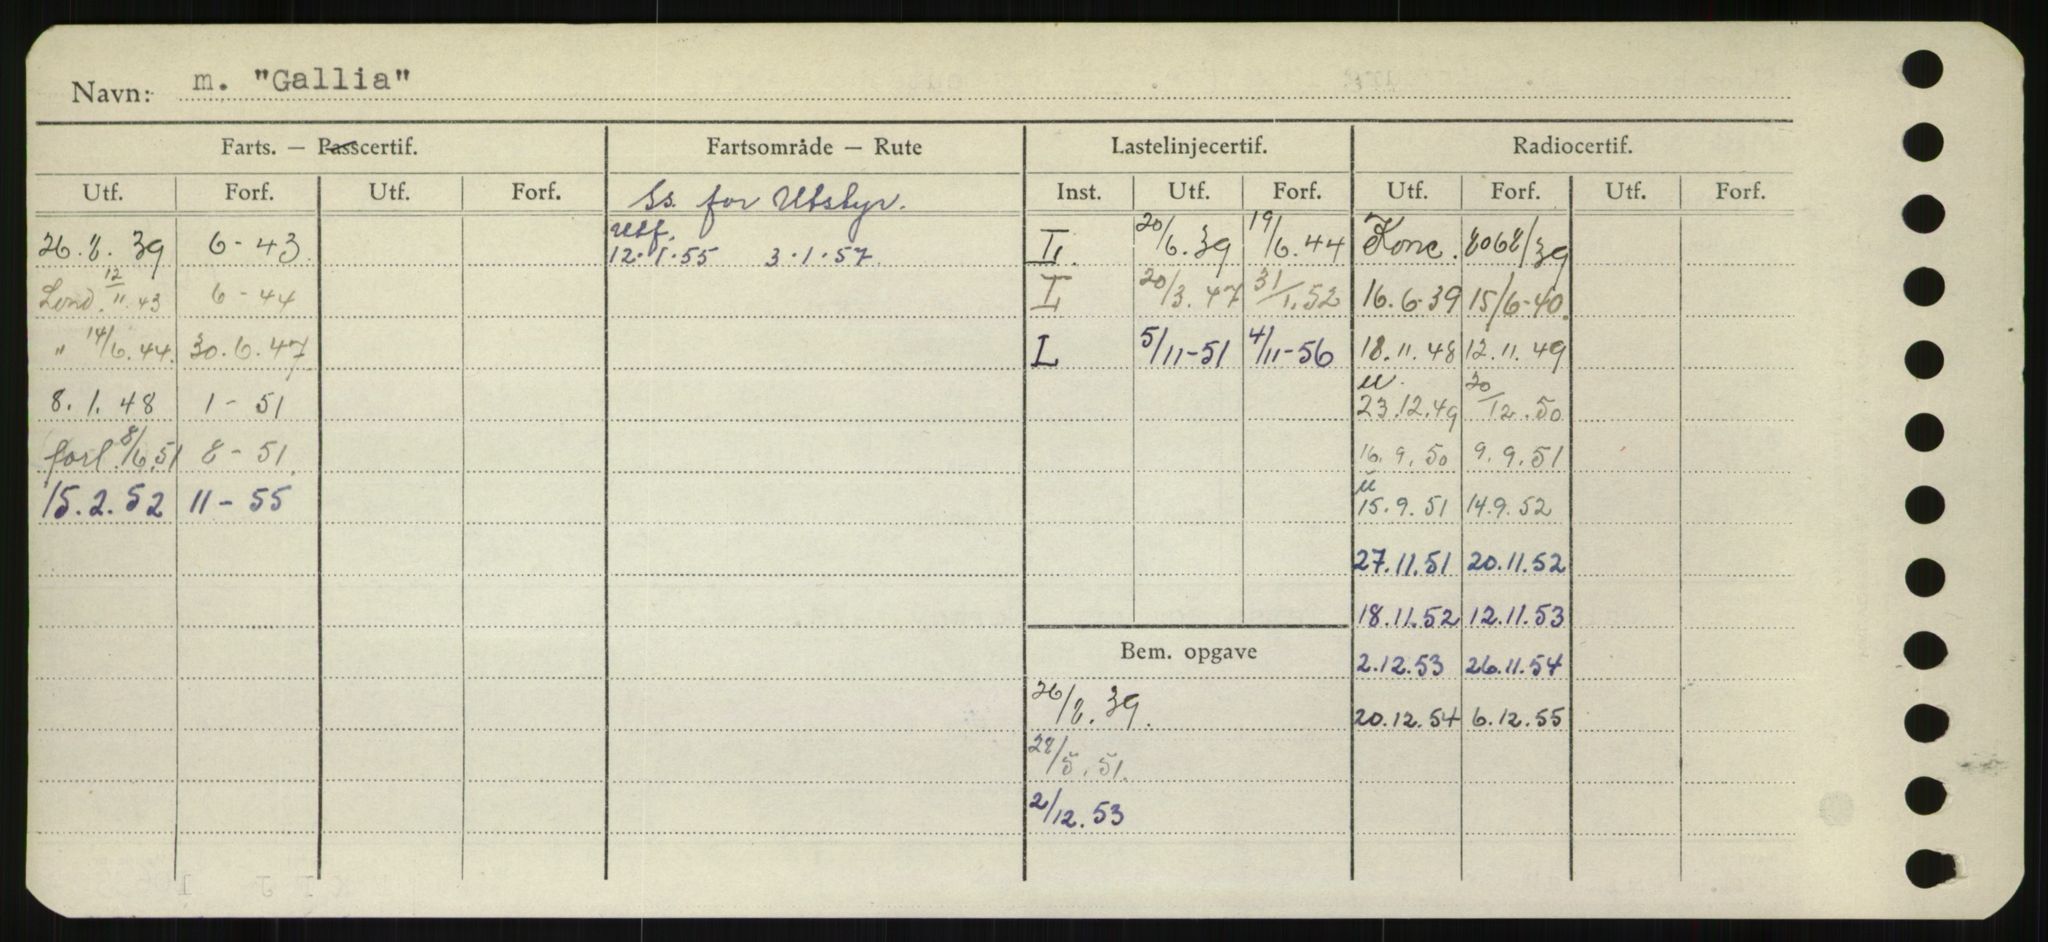 Navn: m. "Gallia"
Farts. — Passcertif. Fartsområde — Rute Lastelinjecertif. Radiocertif.
Utf. Forf. Utf. Forf. Ss. for Utstyr. Inst. Utf. Forf. Utf. Forf. Utf. Forf.
Utf.
26.8.39 6-43 12.1.55 3.1.57 20/6.39 19/6.44 Konc. 8068/39
Lond. 12/11.43 6-44 20/3.47 31/1.52 16.6.39 15/6-40.
" 14/6.44. 30.6.47 L 5/11-51 4/11-56 18.11.48 12.11.49
8.1.48 1-51 23.12.49 20/12.50
forl. 8/6.51 8-51. 16.9.50 9.9.51
15.2.52 11-55 15.9.51 14.9.52
27.11.51 20.11.52
18.11.52 12.11.53
Bem. opgave 2.12.53 26.11.54
26/8.39. 20.12.54 6.12.55
28/5.51.
2/12.53